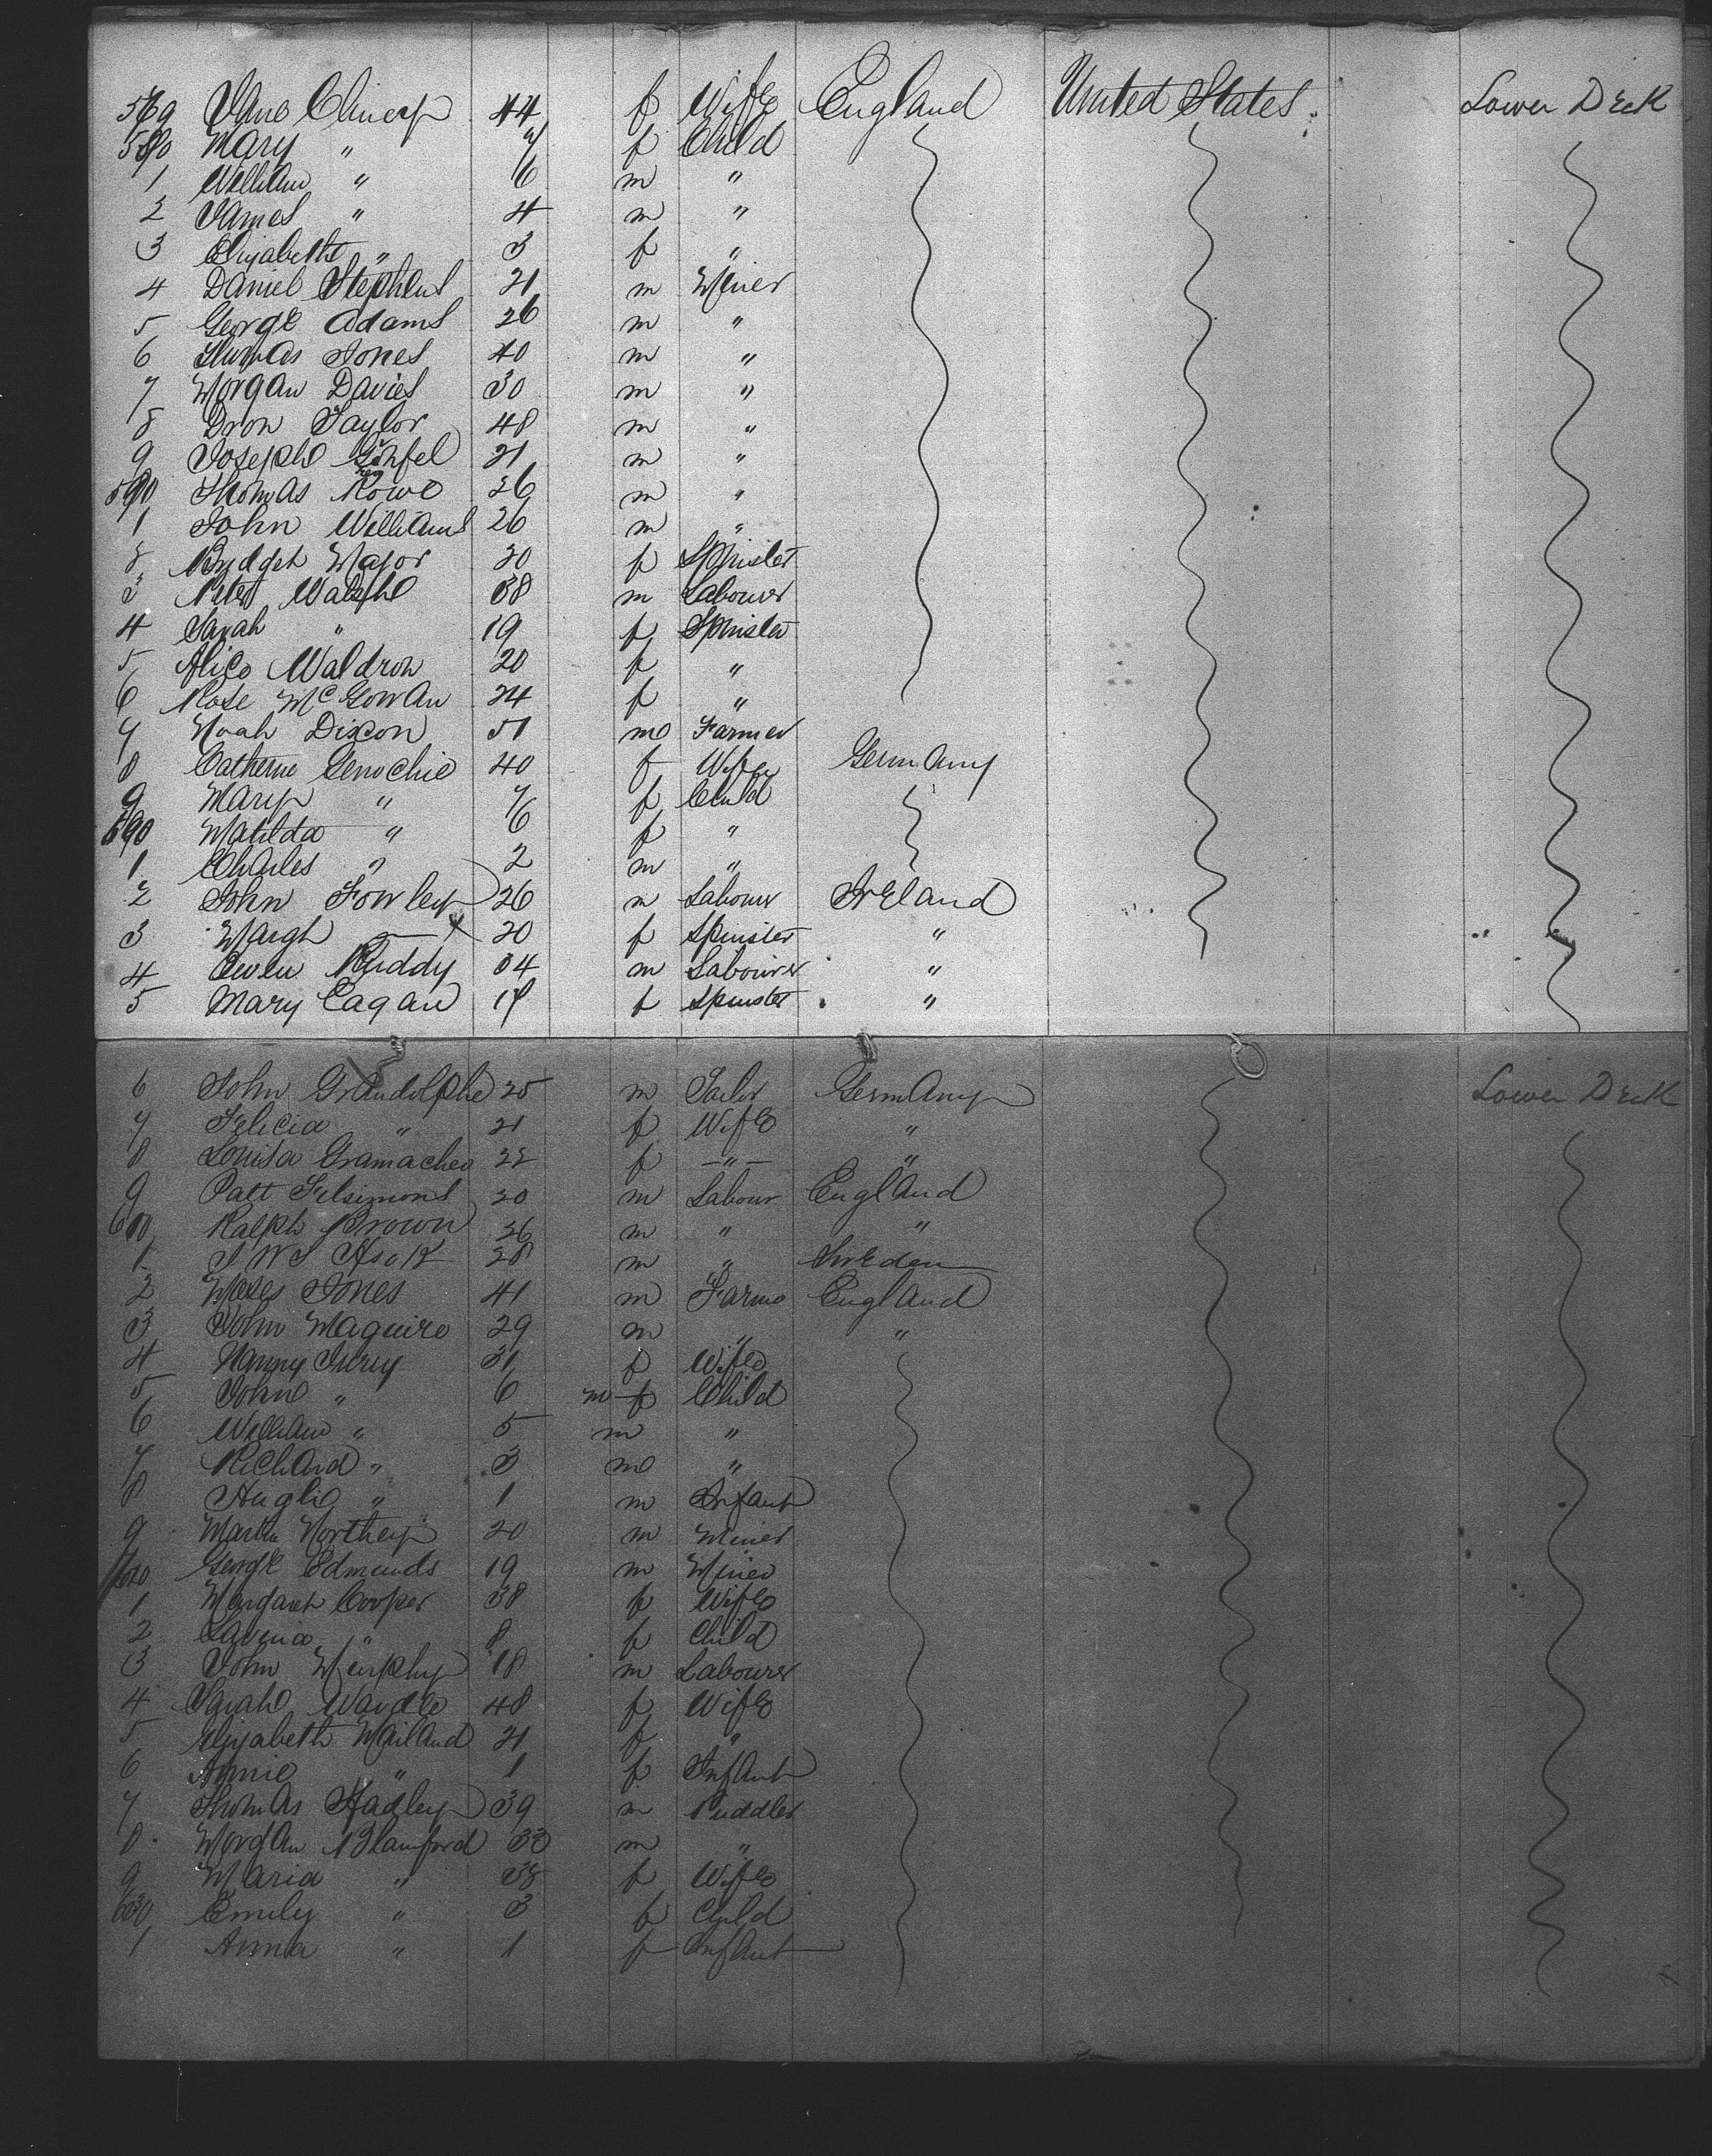 569 Jane Chinery 44 f Wife England United States Lower Deck
Mary " 7 f Child
1 William " 6 m "
2 James " 4 m "
3 Elizabeth " 3 f "
4 Daniel Stephens 21 m Miner
5 George Adams 26 m "
6 Thomas Jones 40 m "
7 Morgan Davies 30 m "
8 Taylor 48 m "
9 Joseph 21 m "
590 Thomas Rowe 26 m "
1 John Williams 26 m "
2 Bridget Major 20 f Spinster
3 Peter Walsh 38 m Labourer
4 Sarah " 19 f Spinster
5 Alice Waldron 20 f "
6 Rose McGowan 24 f "
7 Noah Dixon 51 m Farmer
8 Catherine Genochie 40 f Wife Germany
9 Mary " 7 f Child
590 Matilda " 6 f "
1 Charles " 2 m "
2 John Fowley 26 m Labour Ireland
3 Margh 20 f Spinster "
4 Owen Ruddy 34 m Labourer "
5 Mary Eagan 18 f Spinster "
6 John Grandolphe 25 m Tailor Germany Lower Deck
7 Felicia " 21 f Wife "
8 Louisa Gramacheo 22 f " "
9 Patt Fitsimons 20 m Labour England
600 Ralph Brown 26 m " "
1 28 m " Sweden
2 Moses Jones 41 m Farmer England
3 John Maguire 29 m " "
4 Nanny 31 f Wife
5 John " 6 m f Child
6 William " 5 m "
7 Richard " 3 m "
8 " 1 m Infant
9 Martin Northey 20 m Miner
George Edmunds 19 m Miner
1 Margaret Cooper 38 f Wife
2 Lavinia " 8 f Child
3 John Murphy 18 m Labourer
4 Sarah Wardle 48 f Wife
5 Elizabeth Mailand 21 f "
6 Annie " 1 f Infant
7 Thomas Hadley 39 m Puddler
8 Morgan Blamford 33 m "
9 Maria " 38 f Wife
630 Emily " 3 f Child
1 Anna " 1 f Infant